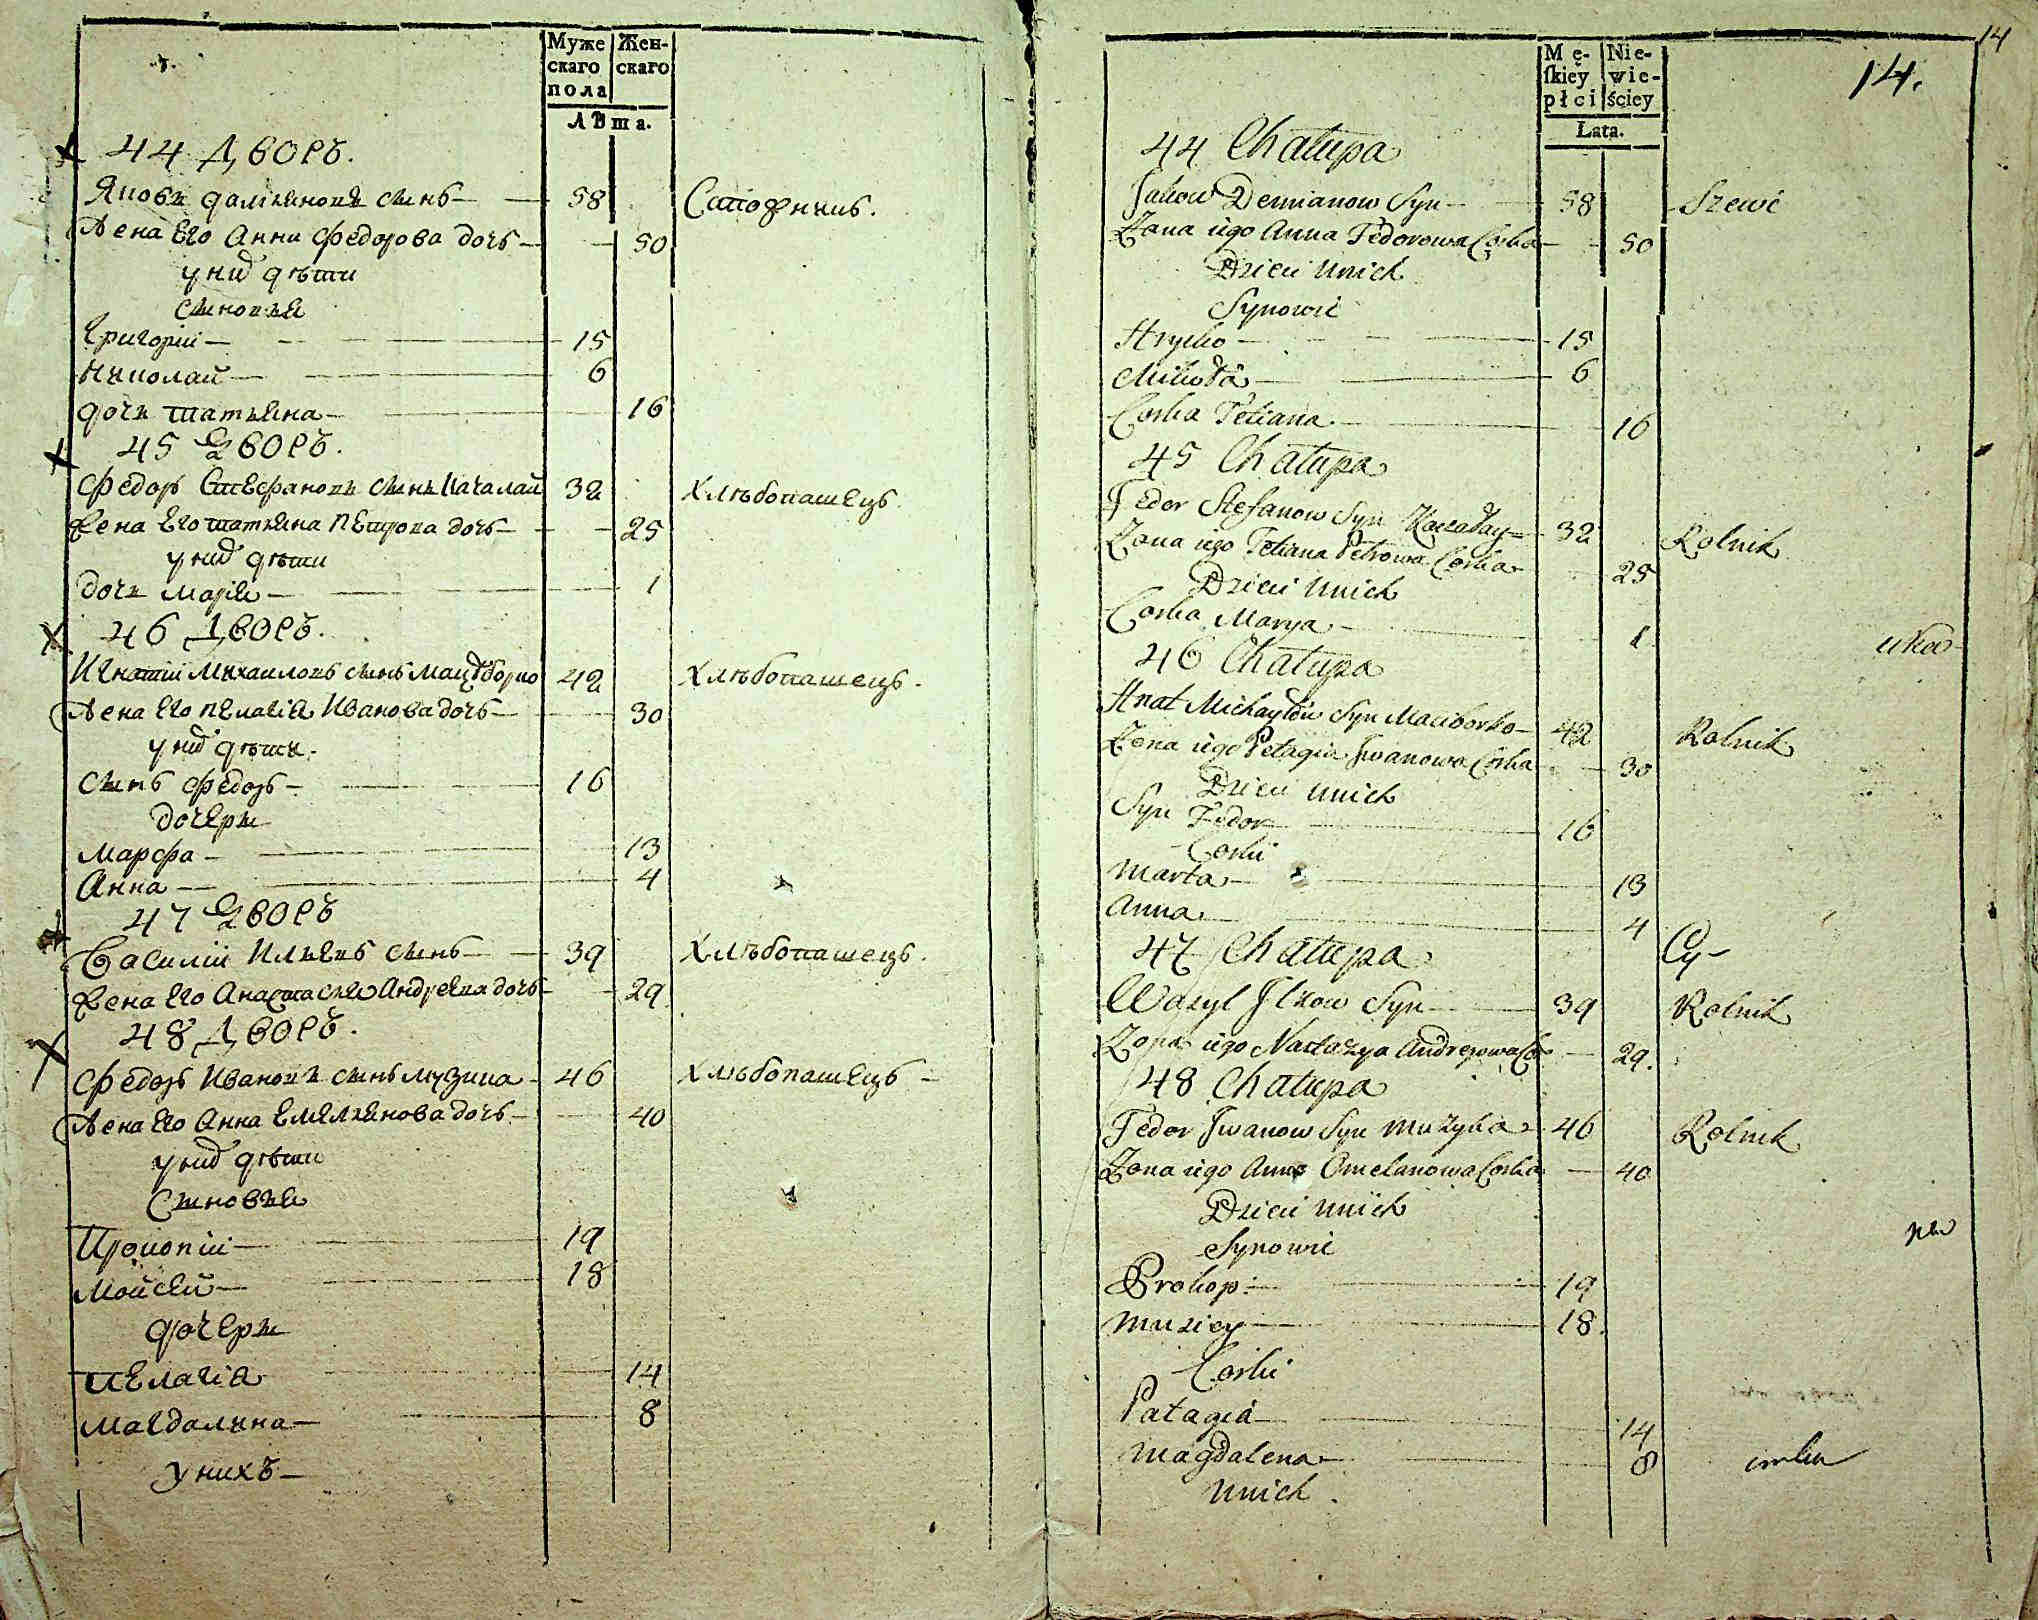 Муже Жен-
скаго скаго
пола
Лѣта.
44 Дворъ.
Яковъ Дамьяновъ сынъ — 58 Сапожникъ.
Жена Его Анна Федорова дочь — 50
у них дѣти
сыновья
Григорій — 15
Николай — 6
дочь Татьяна — 16
45 Дворъ.
Федоръ Стефановъ сынъ Качалай 32 Хлѣбопашецъ
Жена Его Татьяна Петрова дочь — 25
у них дѣти
дочь Марія — 1
46 Дворъ.
Игнатій Михаиловъ сынъ Мацѣборко 42 Хлѣбопашецъ.
Жена Его Пелагія Иванова дочь — 30
у них дѣти.
сынъ Федоръ — 16
дочери
Марфа — 13
Анна — 4
47 Дворъ
Василій Ильевъ сынъ — 39 Хлѣбопашецъ.
Жена Его Анастасія Андреева дочь — 29
48 Дворъ.
Федоръ Ивановъ сынъ Музика — 46 Хлѣбопашецъ —
Жена Его Анна Емельянова дочь — 40
у них дѣти
Сыновья
Прокопій — 19
Мойсей — 18
дочери
Пелагія 14
Магдалина — 8
у нихъ —
14
Mę- Nie-
skiey wie-
płci ściey
Lata.
14.
44 Chałupa
Jakow Demianow Syn — 58 Szewc
Żona iego Anna Fedorowa Corka — 50
Dzieci unich
Synowie
Hryćko — 15
Mikołá — 6
Corka Tetiana — 16
45 Chałupa
Fedor Stefanow Syn Kaczałay — 32 Rolnik
Żona iego Tetiana Petrowa Corka 25
Dzieci unich
Corka Marya — 1
46 Chałupa
Hnat Michayłow Syn Maciborko — 42 Rolnik
Żona iego Pelagia Iwanowa Corka 30
Dzieci unich
Syn Fedor 16
Corki
Marta — 13
Anna 4
47 Chałupa
Wasyl Ilkow Syn — 39 Rolnik
Żona iego Nastazya Andrejowa Co — 29.
48 Chałupa
Fedor Iwanow Syn Muzyka — 46 Rolnik
Żona iego Anna Omelanowa Corka — 40
Dzieci unich
Synowie
Prokop — 19
Musiey — 18.
Corki
Palagia — 14
Magdalena — 8
unich.